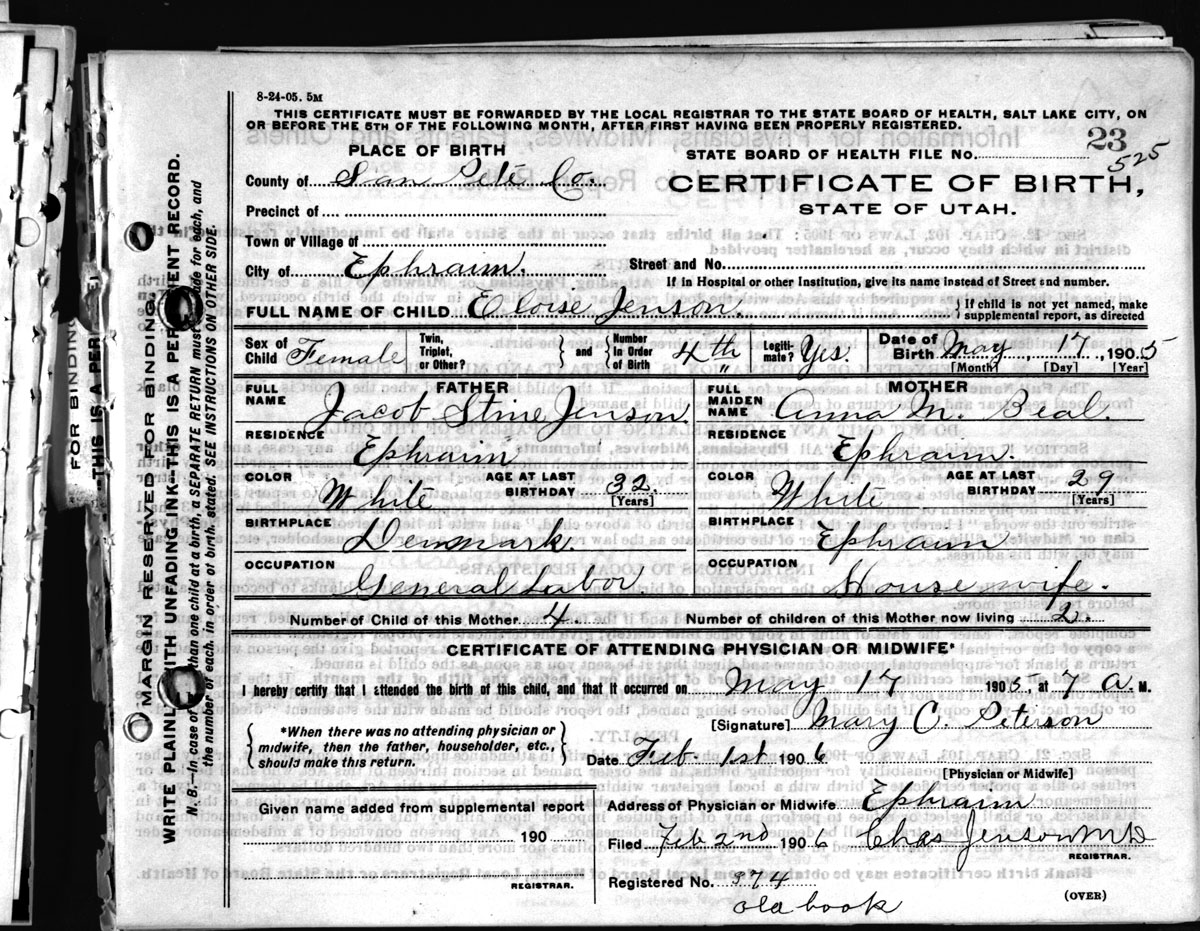 8-24-05. 5M
THIS CERTIFICATE MUST BE FORWARDED BY THE LOCAL REGISTRAR TO THE STATE BOARD OF HEALTH, SALT LAKE CITY, ON
OR BEFORE THE 5TH OF THE FOLLOWING MONTH, AFTER FIRST HAVING BEEN PROPERLY REGISTERED.
PLACE OF BIRTH
STATE BOARD OF HEALTH FILE No. 23
525
County of San Pete Co.
CERTIFICATE OF BIRTH,
STATE OF UTAH.
Precinct of
Town or Village of
City of Ephraim.
Street and No.
If in Hospital or other Institution, give its name instead of Street and number.
FULL NAME OF CHILD Eloise Jenson.
{ If child is not yet named, make
supplemental report, as directed
Sex of Child Female
Twin, Triplet, or Other?
} and { Number in Order of Birth 4th "
Legitimate? Yes.
Date of Birth May, 17, 1905
[Month] [Day] [Year]
FATHER
FULL NAME Jacob Stine Jenson
RESIDENCE Ephraim
COLOR White
AGE AT LAST BIRTHDAY 32.
[Years]
BIRTHPLACE Denmark.
OCCUPATION General Labor
MOTHER
FULL MAIDEN NAME Anna M. Beal
RESIDENCE Ephraim.
COLOR White
AGE AT LAST BIRTHDAY 29
[Years]
BIRTHPLACE Ephraim
OCCUPATION House wife.
Number of Child of this Mother 4.
Number of children of this Mother now living 2.
CERTIFICATE OF ATTENDING PHYSICIAN OR MIDWIFE*
I hereby certify that I attended the birth of this child, and that it occurred on May 17 1905, at 7 A. M.
[Signature] Mary C. Peterson
{ *When there was no attending physician or
midwife, then the father, householder, etc.,
should make this return. }
Date Feb. 1st 1906
[Physician or Midwife]
Given name added from supplemental report
190
REGISTRAR.
Address of Physician or Midwife Ephraim
Filed Feb 2nd 1906 Chas Jenson MD
REGISTRAR.
Registered No. 374
old book
(OVER)
MARGIN RESERVED FOR BINDING
WRITE PLAINLY WITH UNFADING INK—THIS IS A PERMANENT RECORD.
N. B.—In case of more than one child at a birth, a SEPARATE RETURN must be made for each, and
the number of each, in order of birth, stated. SEE INSTRUCTIONS ON OTHER SIDE.
FOR BINDING
THIS IS A PER